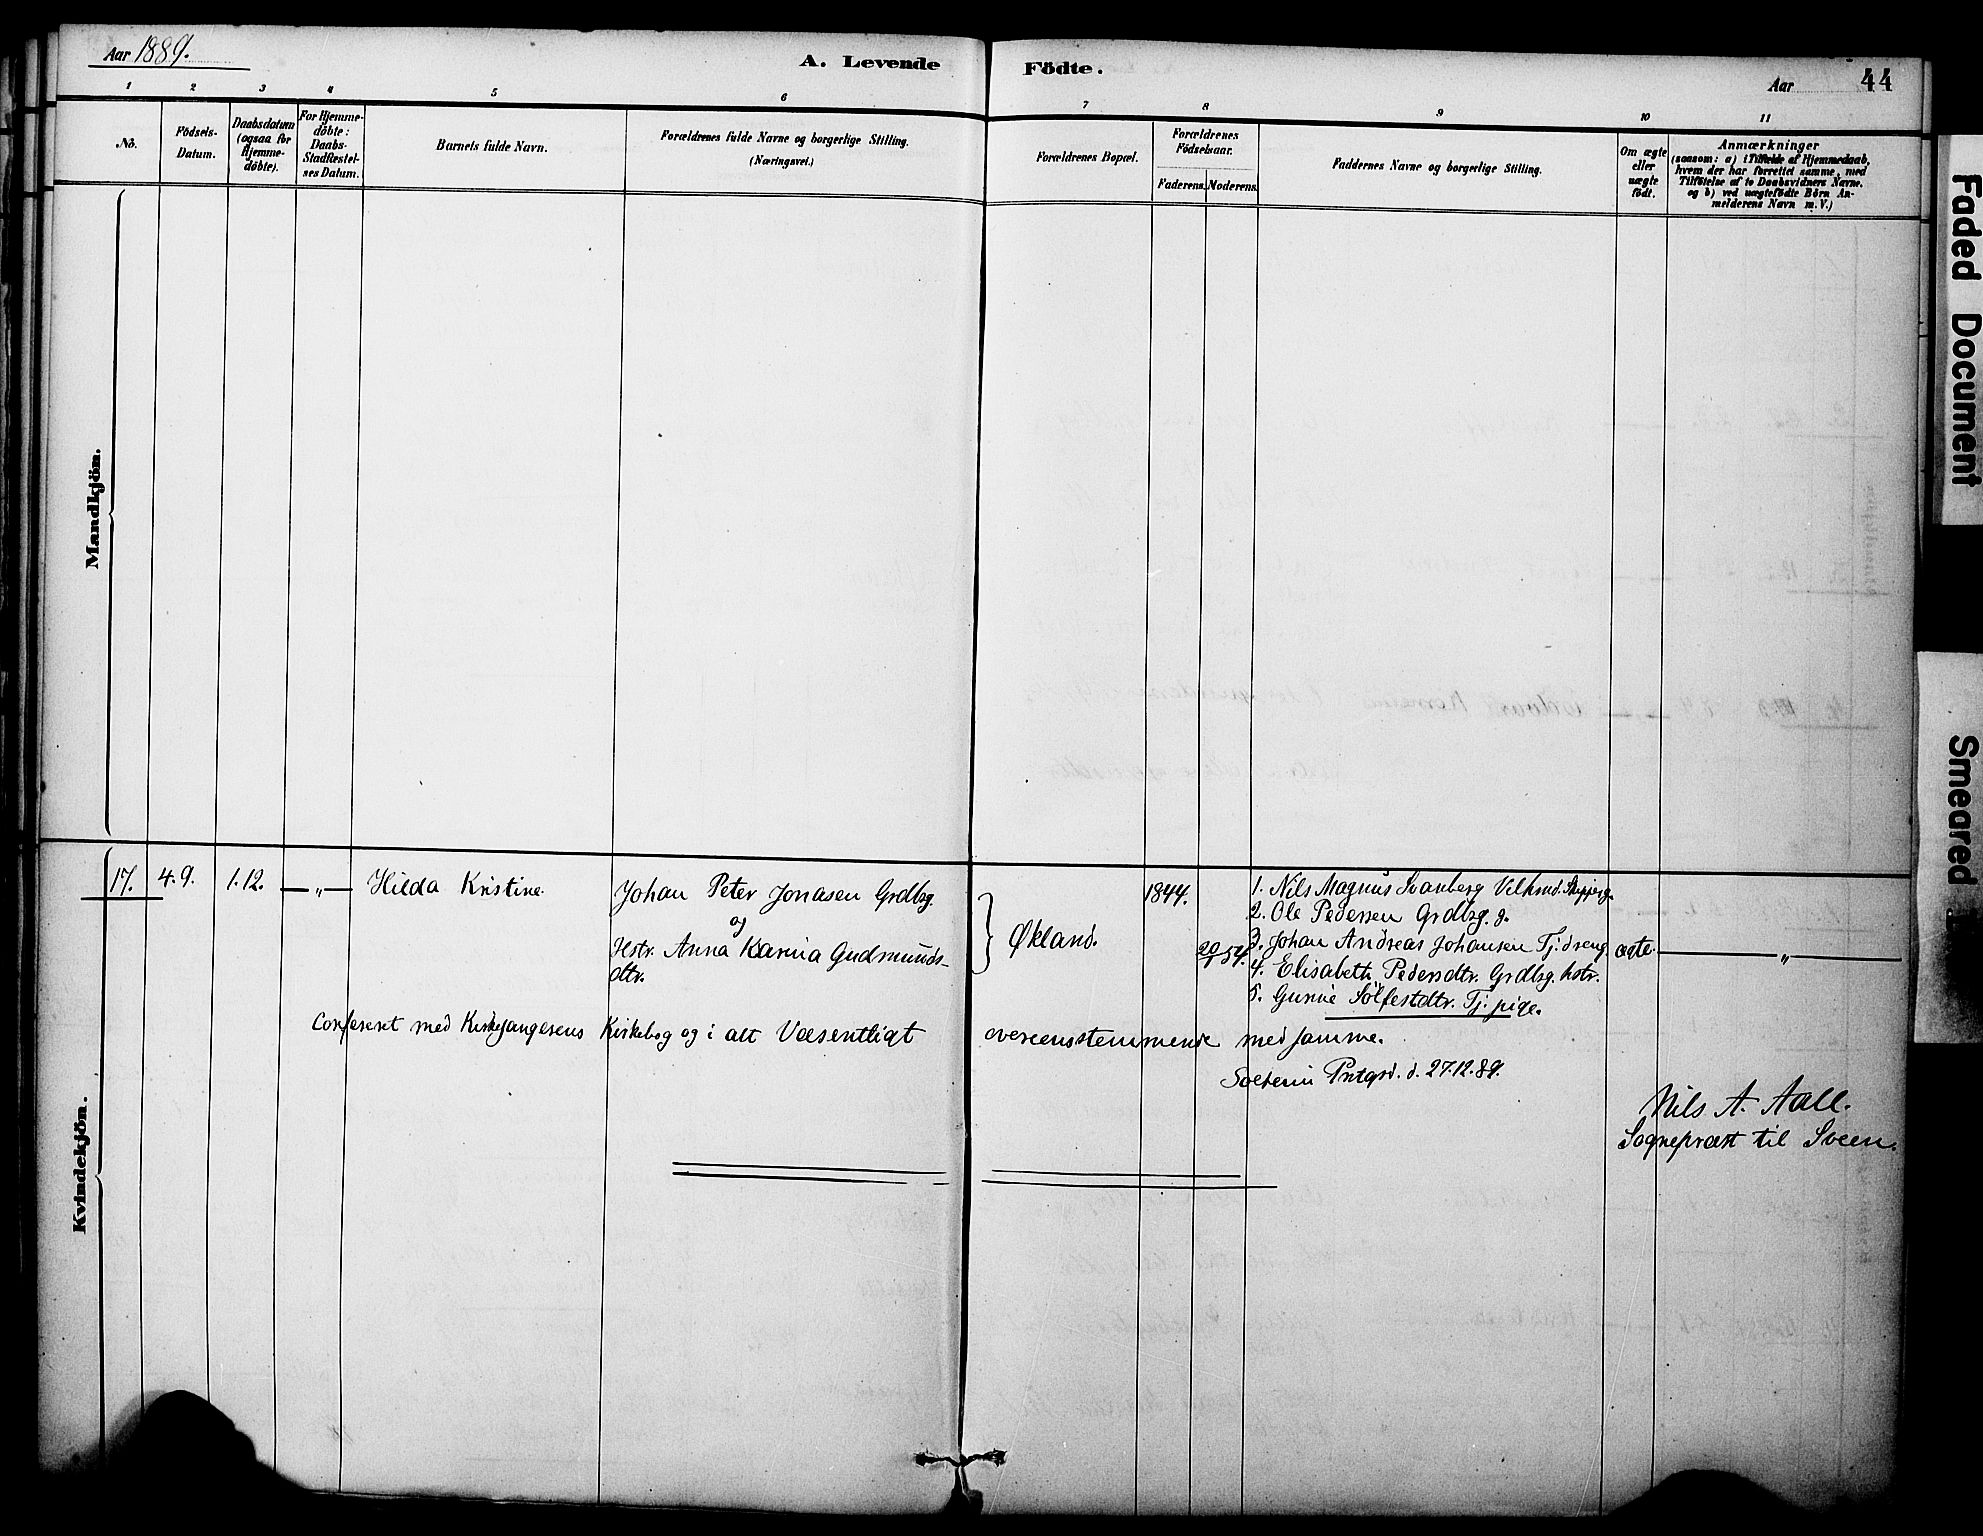 Aar 1889.
A. Levende Födte.
Aar
44
1 2 3 4 5 6 7 8 9 10 11
No.
Födsels-
Datum.
Daabsdatum
(ogsaa for
Hjemme-
döbte).
For Hjemme-
döbte:
Daabs-
Stadfæstel-
ses Datum.
Barnets fulde Navn.
Forældrenes fulde Navne og borgerlige Stilling.
(Næringsvei.)
Forældrenes Bopæl.
Forældrenes
Födselsaar.
Faderens. Moderens.
Faddernes Navne og borgerlige Stilling.
Om ægte
eller
uægte
födt.
Anmærkninger
(saasom: a) i Tilfælde af Hjemmedaab,
hvem der har forrettet samme, med
Tilföielse af to Daabsvidners Navne.
og b) ved uægtefödte Börn An-
melderens Navn m.V.)
Mandkjön.
Kvindekjön.
17. 4.9. 1.12. — " — Hilda Kristine
Johan Peter Jonasen Grdbrg.
og
Hstr. Anna Karina Gudmunds-
dtr.
Økland.
1844.
20/1 54.
1. Nils Magnus Svanberg
2. Ole Pedersen Grdbrg. g.
3. Johan Andreas Johansen Tj. dreng
4. Elisabeth Pedersdtr. Grdbrg. hstr.
5. Gunie Sölfestdtr. Tj. pige.
ægte — " —
Confereret med Kirkesangerens Kirkebog og i alt Væsentligt overensstemmende med samme.
Prstgrd. d. 27.12.89.
Nils A. Aall.
Sognepræst til Sveen.
Faded Document
Smeared